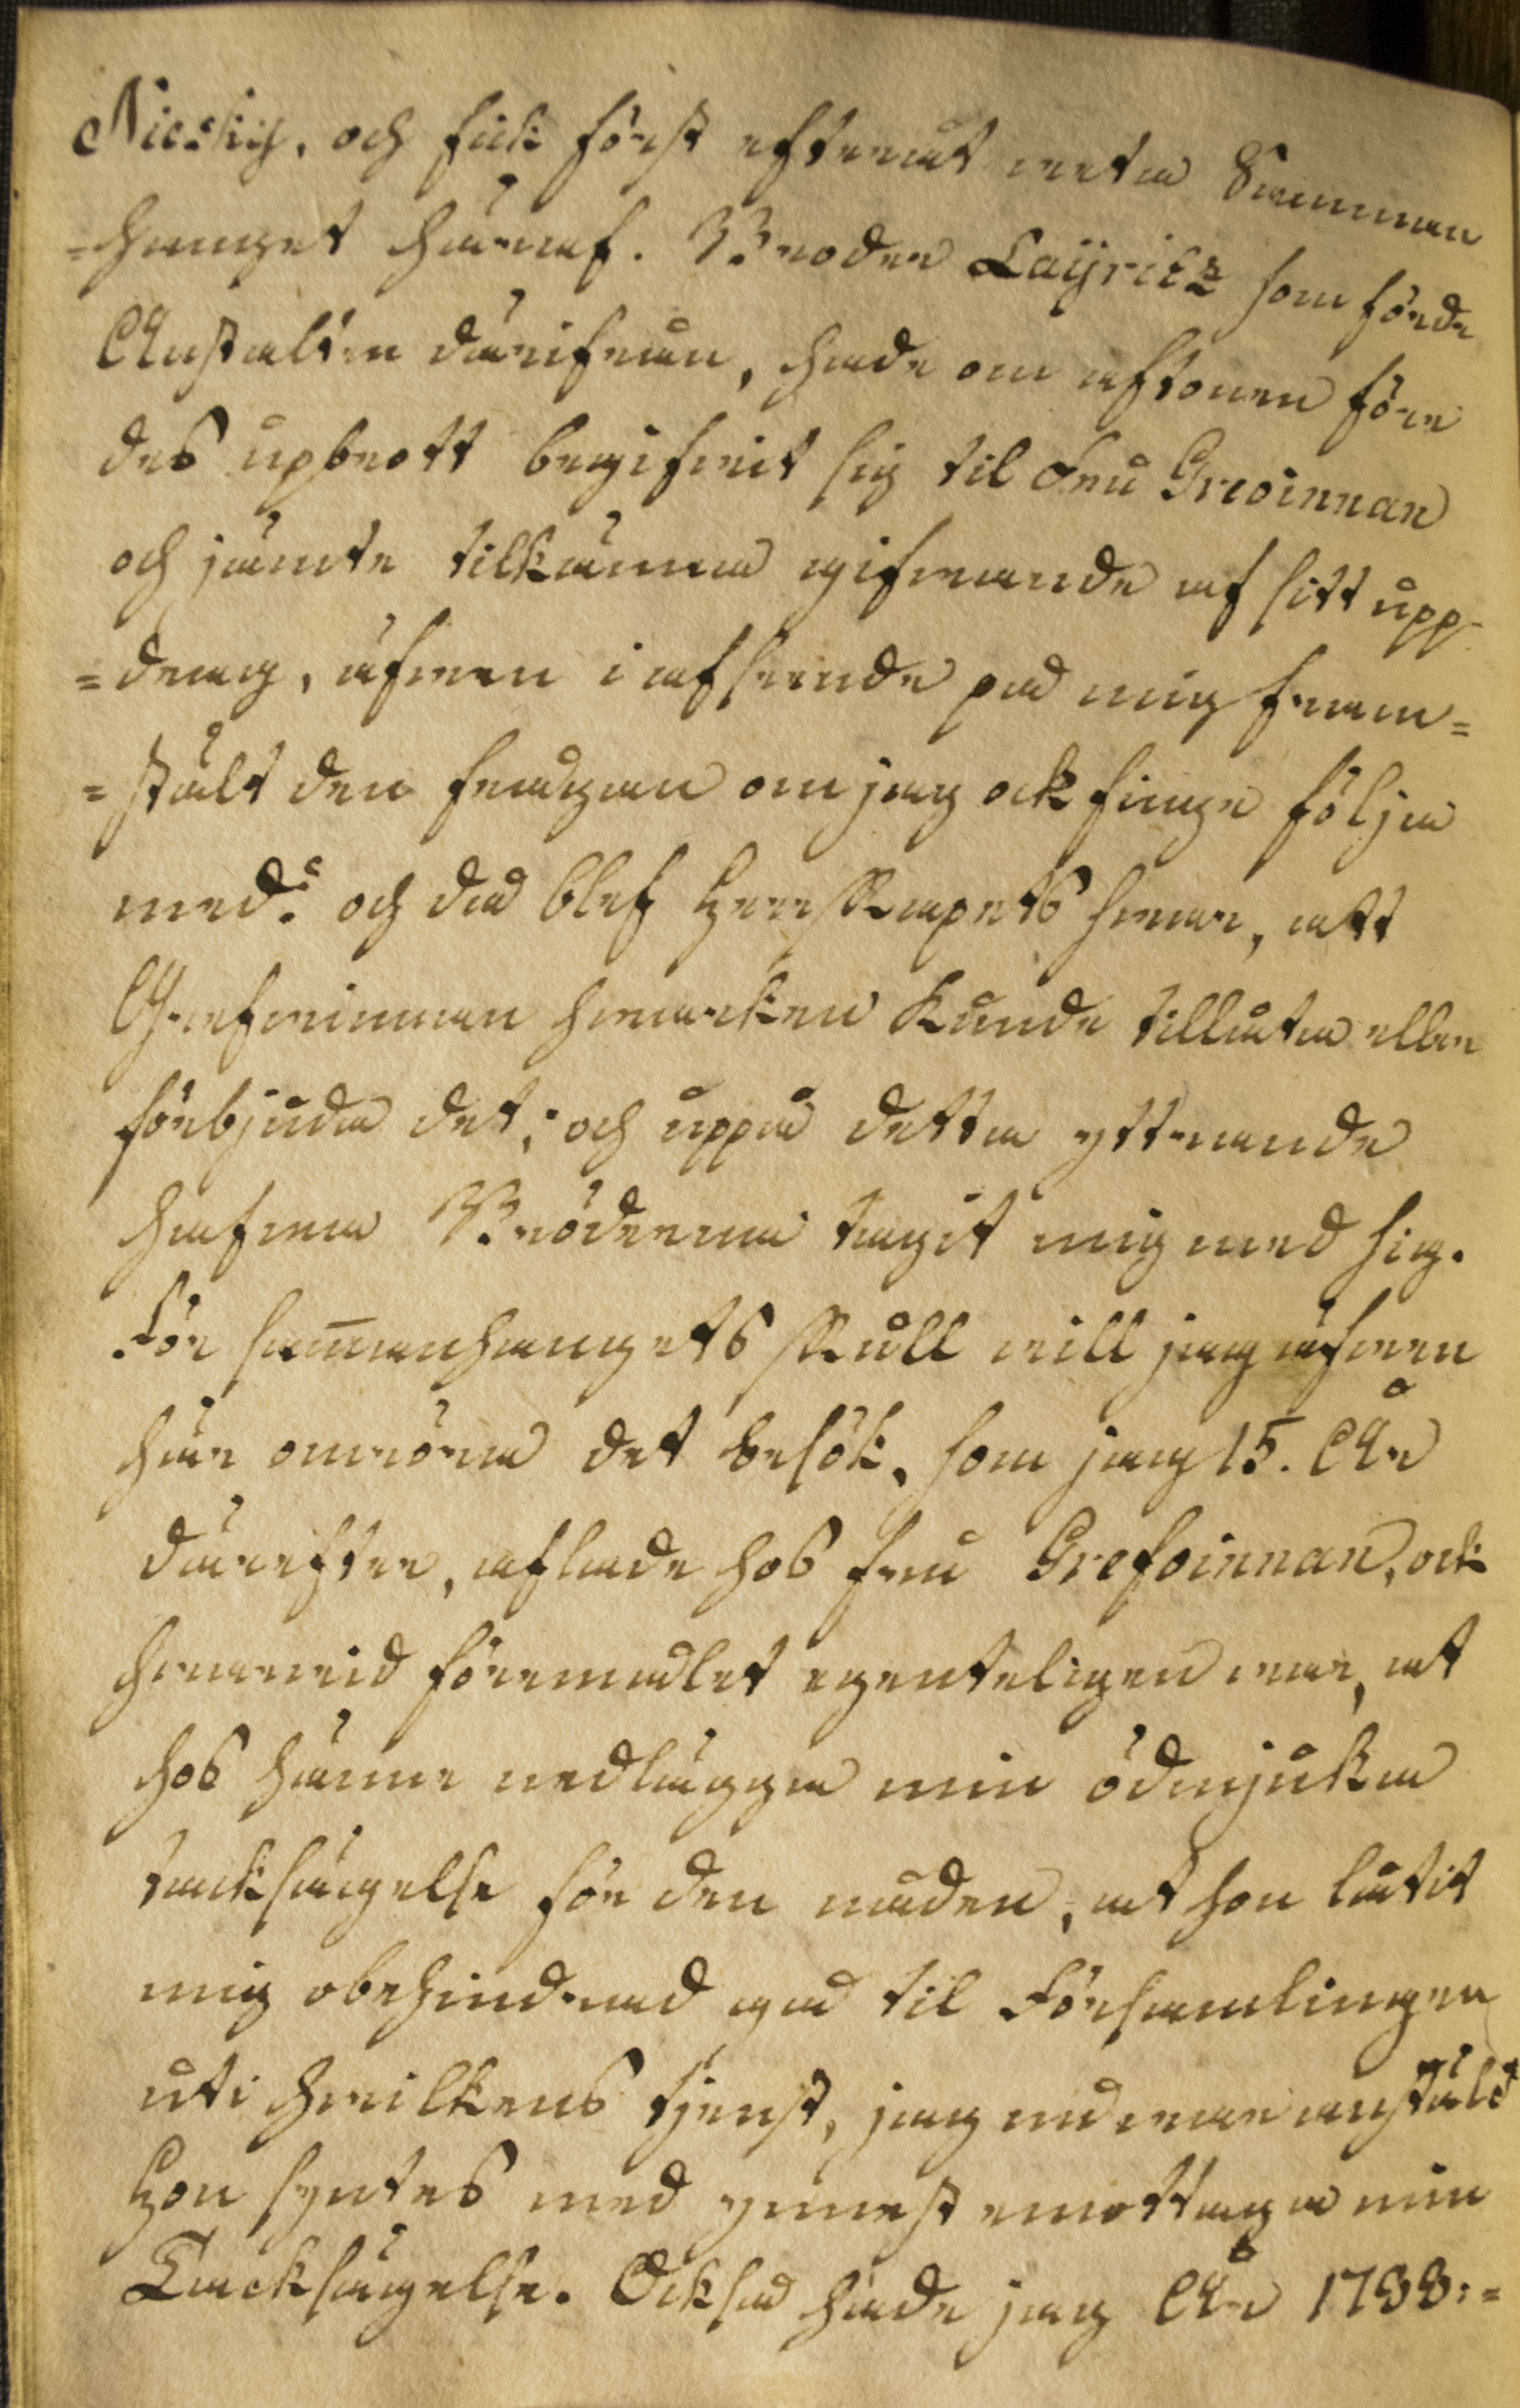 Nieskij. och fick först efteråt veta Samman
=hanget häraf. Broder Laÿritz som förde
Anstalten därifrån, hade om aftonen före
des upbrott begifvit sig til Fru Grevinnan
och jämte tilkänna gifvande af sitt upp
=drag, äfven i afseende på mig fram=
=stält den frågan om jag ock finge följa
med? och då blef Herrskapets svar, att
Grefvinnan hvarken kunde tillåta eller
förbjuda det; och uppå detta yttrande
hafva Bröderna tagit mig med sig.
För sam̅anhangets skull vill jag äfven
här omröra det besök, som jag 15. År
därefter, aflade hos fru Grefvinnan, ock
hvarvid föremålet egenteligen var, at
hos hänne nedlägga min ödmjuka
tacksägelse för den nåden, at hon låtit
mig obehindrad gå til Församlingen
uti hvilkens tjenst, jag nu var anstäld
Hon syntes med ynnest emottaga min
Tacksägelse. Också hade jag År 1788:=